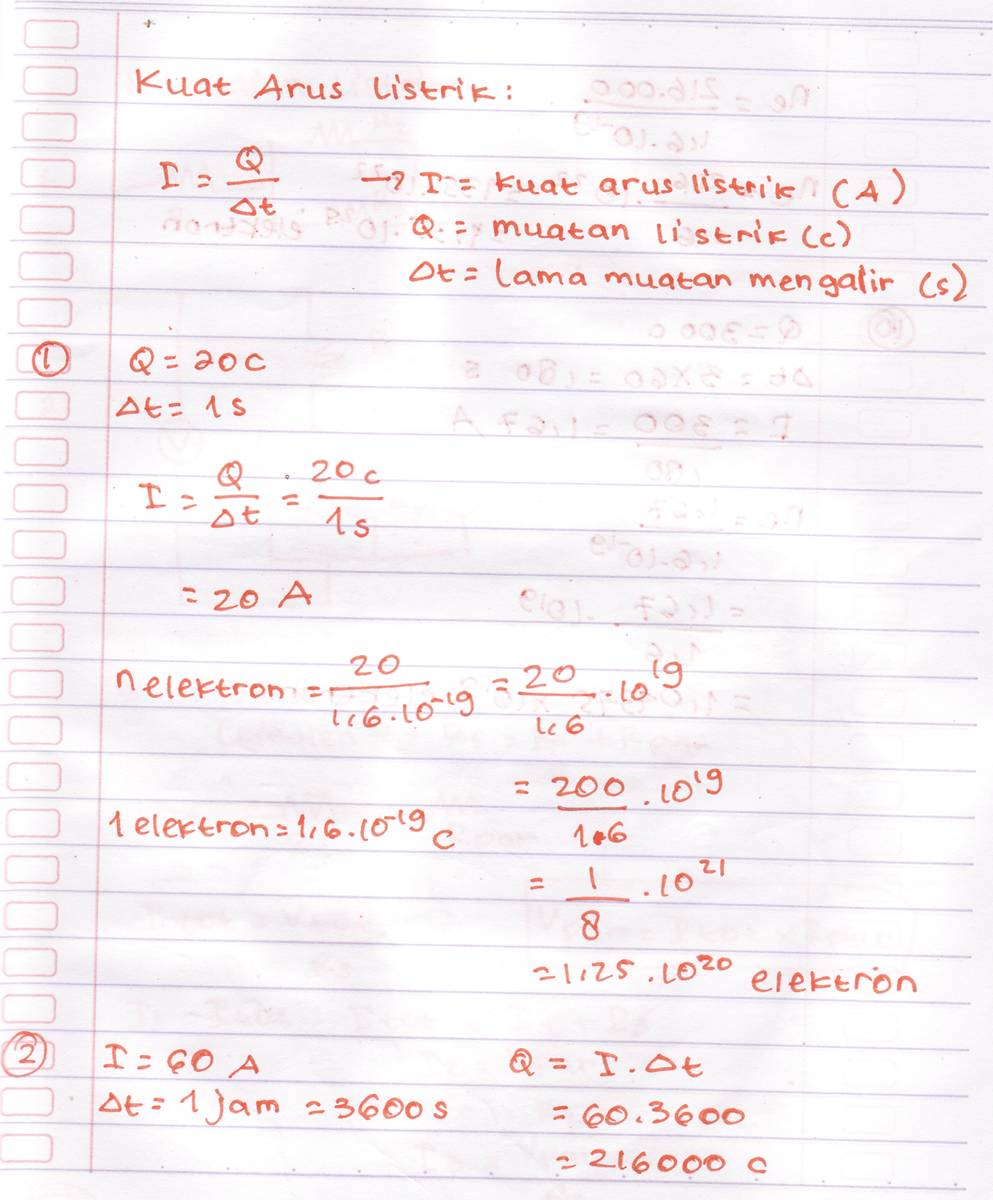 Kuat Arus Listrik:
I = Q/Δt → I = kuat arus listrik (A)
Q = muatan listrik (c)
Δt = lama muatan mengalir (s)
① Q = 20 c
Δt = 1 s
I = Q/Δt = 20 c/1 s
= 20 A
n elektron = 20/1,6 · 10⁻¹⁹ = 20/1,6 · 10¹⁹
= 200/16 · 10¹⁹
1 elektron = 1,6 · 10⁻¹⁹ c
= 1/8 · 10²¹
= 1,25 · 10²⁰ elektron
② I = 60 A Q = I · Δt
Δt = 1 jam = 3600 s = 60 . 3600
= 216000 c